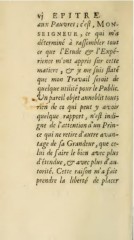 vj EPITRE
aux Pauvres; c'est, MON-
SEIGNEUR, ce qui m'a
déterminé à rassembler tout
ce que l'Etude & l'Expé-
rience m'ont appris sur cette
matiere, & je me suis flaté
que mon Travail seroit de
quelque utilité pour le Public.
Un pareil objet annoblit tous
ceux qui
quelque rapport, n'est indi-
gne de l'attention d'un Prin-
ce qui ne retire d'autre avan-
tage de sa Grandeur, que ce-
lui de faire le bien avec plus
d'étendue, & avec plus d'au-
torité. Cette raison m'a fait
prendre la liberté de placer